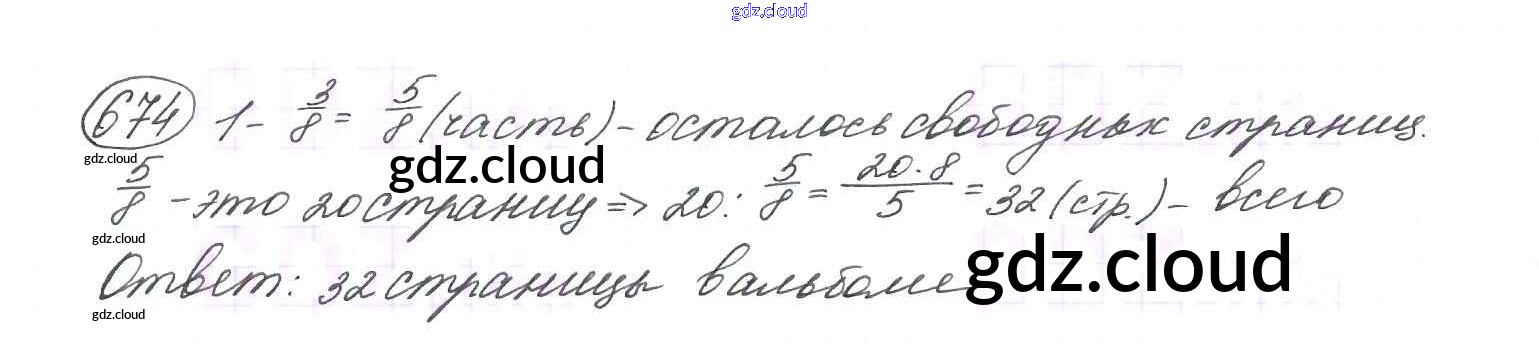 gdz.cloud
674 1 - 3/8 = 5/8 (часть) - осталось свободных страниц.
gdz.cloud
gdz.cloud
5/8 - это 20 страниц => 20 : 5/8 = 20·8/5 = 32 (стр.) - всего
gdz.cloud
gdz.cloud
Ответ: 32 страницы в альбоме
gdz.cloud